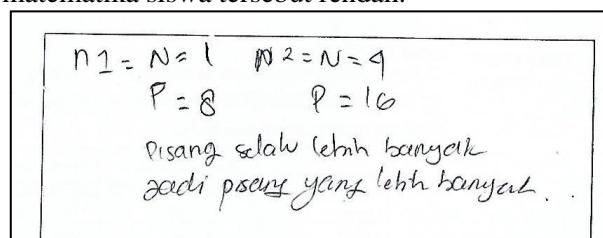 matematika siswa tersebut rendah.
n1 = N = 1 n2 = N = 4
P = 8 P = 16
Pisang selalu lebih banyak
Jadi pisang yang lebih banyak.